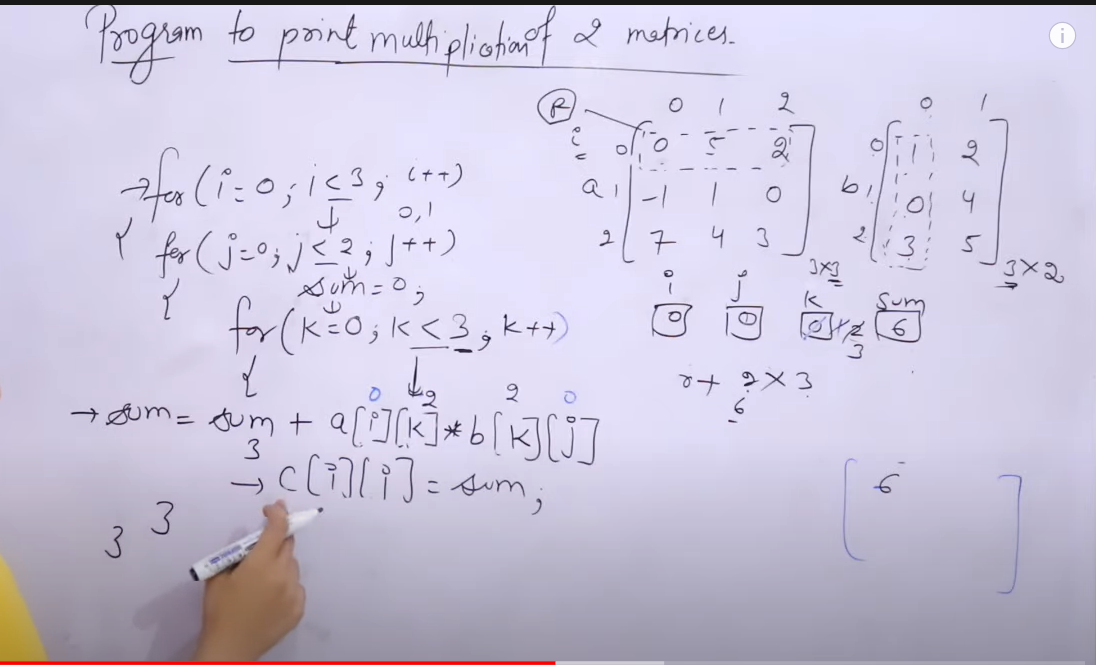 Program to print multipliction of 2 metrices.
→ for ( i = 0 ; i < 3 ; i++)
↓ 0,1
{ for ( j=0 ; j < 2 ; j++)
↓
sum = 0 ;
{ ↓
for ( K=0 ; K < 3 ; K++)
{ ↓
0 2 2 0
→ sum = sum + a[i][K] * b[K][j]
3
→ C[i][j] = sum ;
3 3
R 0 1 2
i 0 0 5 2
a 1 -1 1 0
2 7 4 3
3×3
0 1
0 1 2
b 1 0 4
2 3 5
3×2
i j K sum
0 0 0 1 2 6
3
r + 2 × 3
6
[ 6 ]
i